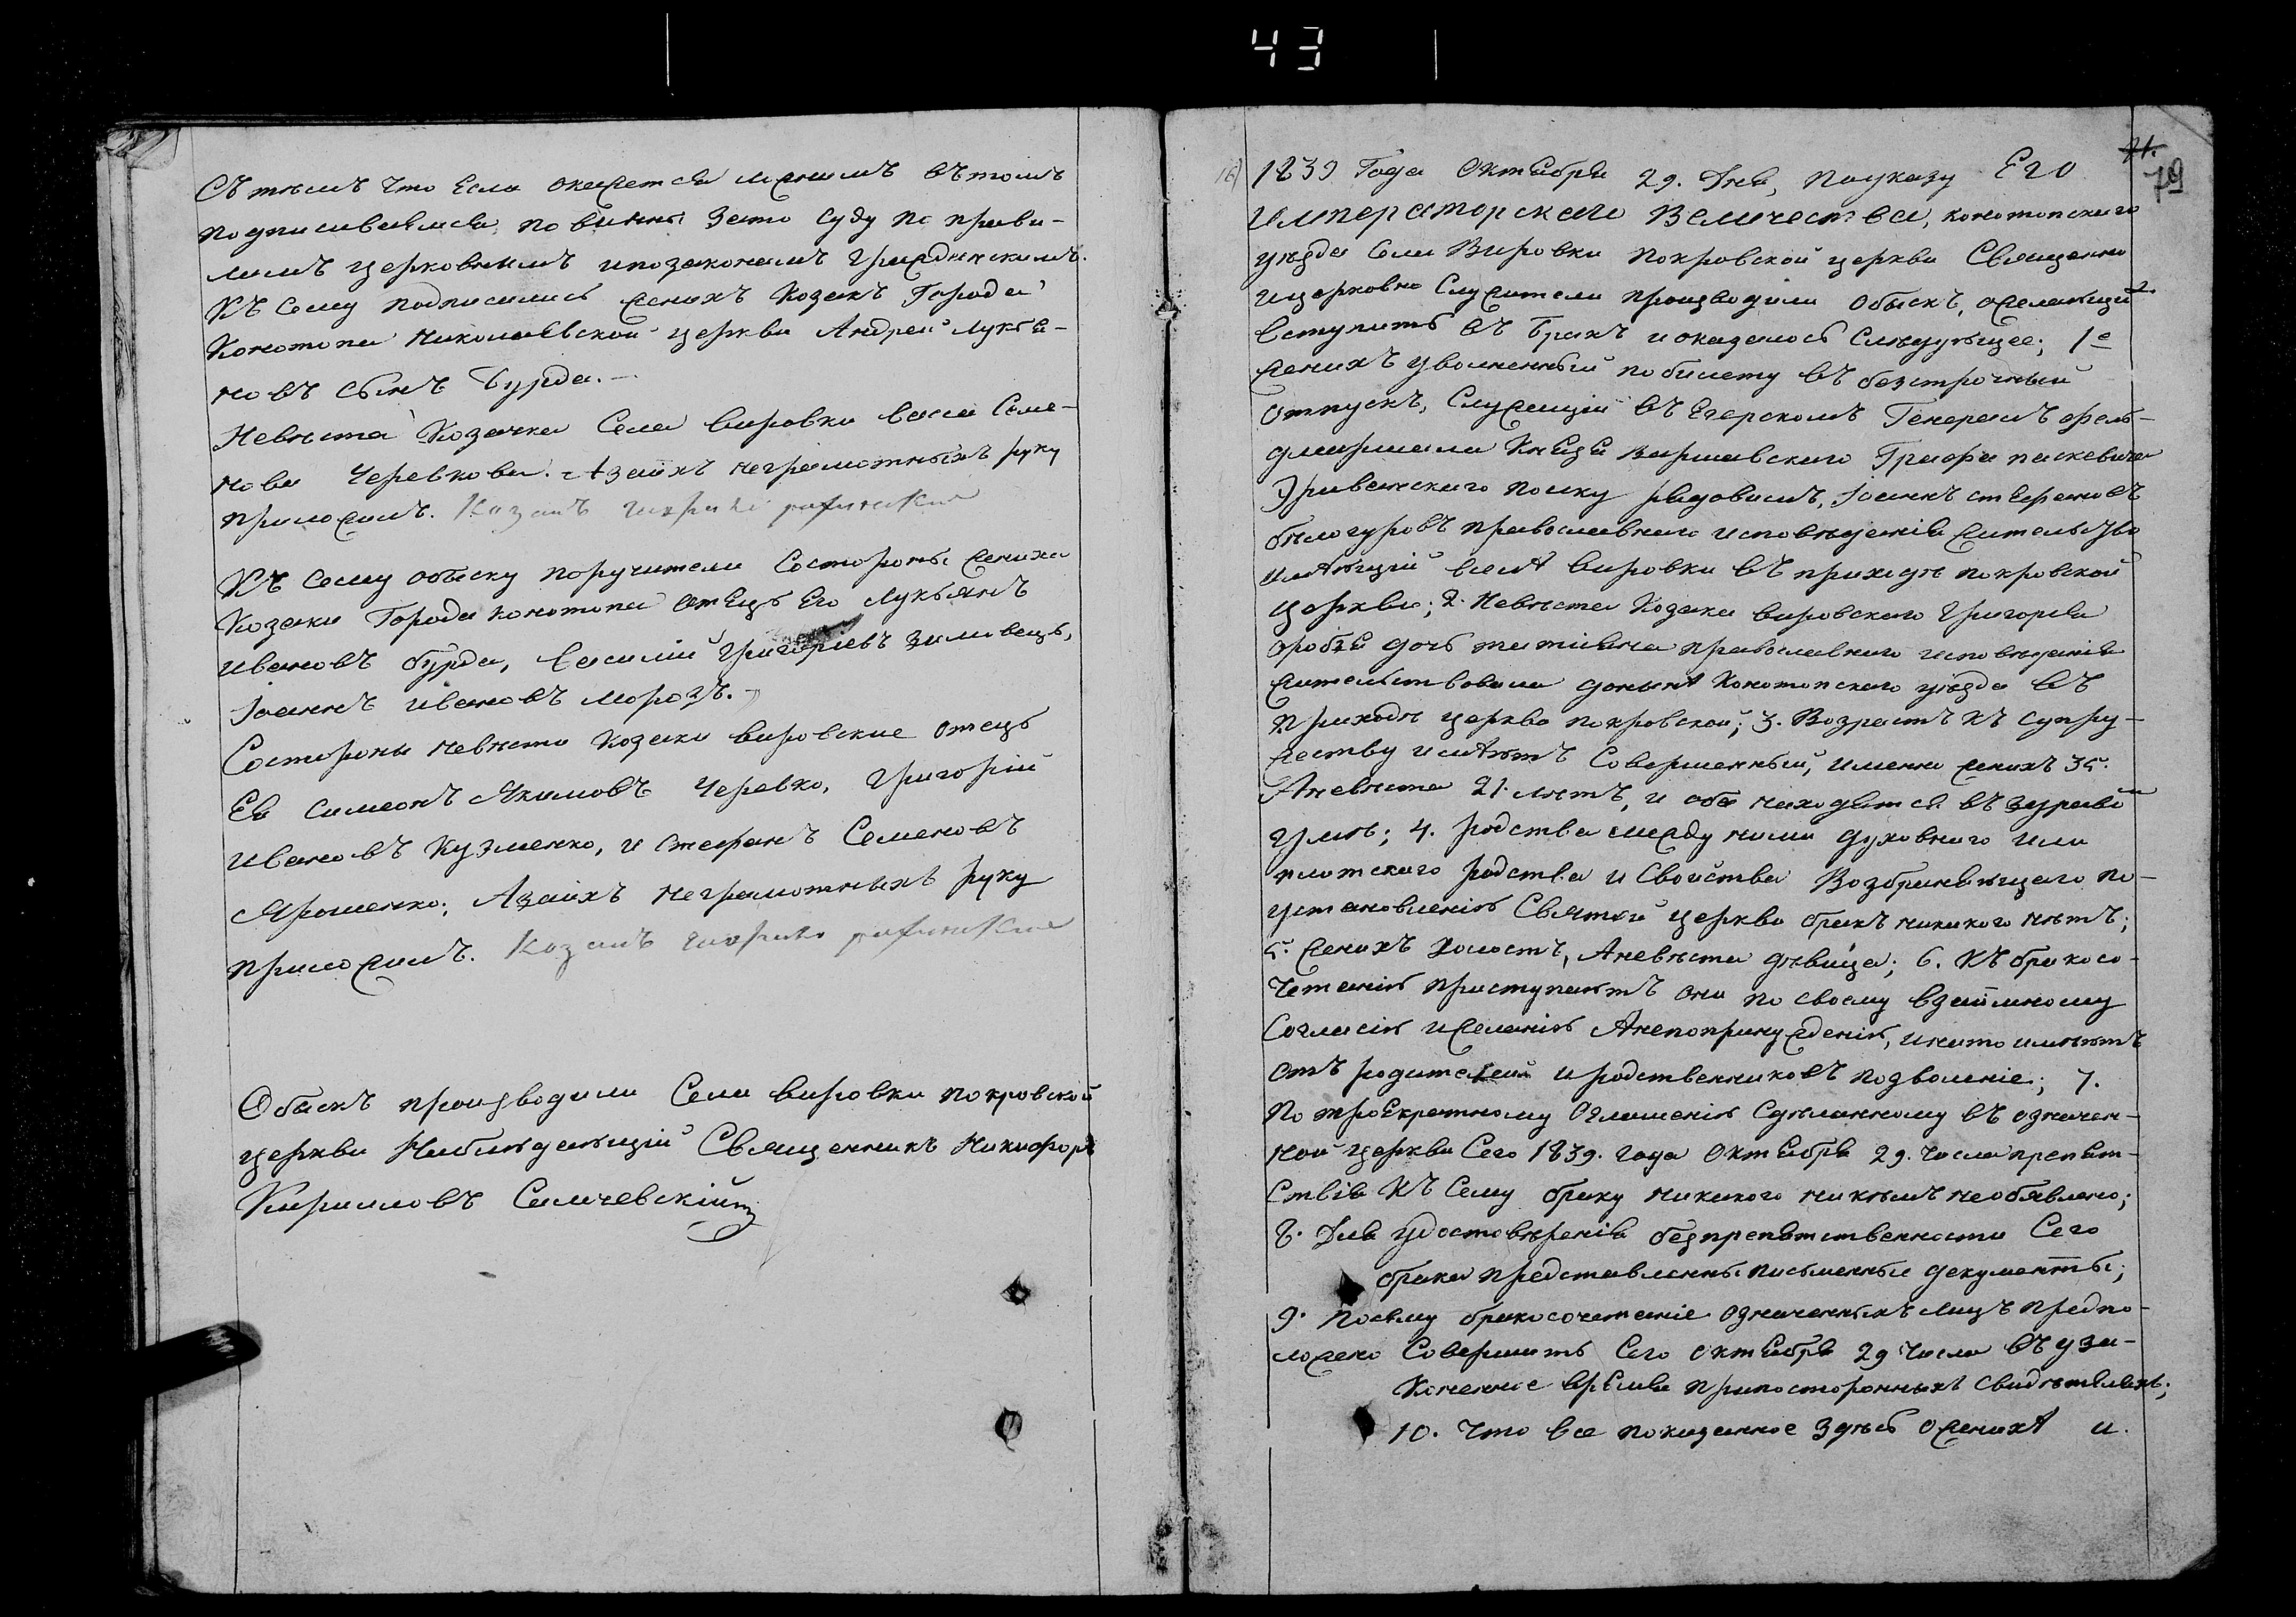 43
Съ тѣмъ что Если окажется ложнимъ въ томъ
подписиваемся, повинны Зато Суду по прави-
ламъ церковнымъ и по законамъ гражданскимъ.
Къ Сему подписались женихъ Козакъ Города
Конотопа Николаевской церкви Андрей Лукья-
новъ Сынъ Бурда.
Невѣста Козачка Села Вировки Васса Семе-
нова Черевкова. А за ихъ неграмотныхъ руку
приложилъ. Козакъ
Къ Сему обыску поручители Состороны жениха
Козаки Города Конотопа отецъ Его Лукьянъ
Ивановъ Бурда, Василий Григориевъ Зиловецъ,
Iоаннъ Ивановъ Морозъ.
Состороны невѣсти Козаки вировские отецъ
Ея Симеонъ Якимовъ Черевко, Григорій
Ивановъ Кузменко, и Стефанъ Семеновъ
Ярошенко; А за ихъ неграмотныхъ руку
приложилъ. Козакъ
Обыскъ производили Села Вировки покровской
церкви Наблюдающій Священникъ Никифоръ
Кириловъ Самчевскій
16) 1839 Года Октября 29. Дня, По указу ЕГО 71. 79
Императорскаго Величества, конотопскаго
уѣзда Села Вировки покровской церкви Священно
и церковно Служители производили Обыскъ, о желающихъ
Вступить въ Бракъ и оказалось Слѣдующее; 1е
женихъ уволненный по билету въ безстрочный
отпускъ, Служащій въ Егерскомъ Генералъ Фель-
дмаршала Князя Варшавскаго Графа Паскевича
Эриванскаго полку рядовымъ, Iоаннъ Стефановъ
бѣлогуровъ православнаго исповѣданія жительство
имѣющій села Вировки въ приходѣ покровской
церкви; 2. Невѣста Козака вировскаго Григорія
дочь татіяна православнаго исповѣданія
жительствовала донынѣ Конотопскаго уѣзда въ
Приходѣ церкви покровской; 3. Возрастъ къ супру-
жеству имѣютъ Совершенный, именно женихъ 35.
А невѣста 21. лѣтъ, и оба находятся въ здравомъ
умѣ; 4. родства между ними духовнаго или
плотскаго родства и Свойства Возбраняющаго по
установленію Святой церкви бракъ никакого нѣтъ;
5. женихъ холостъ, А невѣста дѣвица; 6. Къ бракосо-
четанію приступаютъ они по своему взаимному
Согласію и желанію А не по принужденію, и на то имѣютъ
отъ родителей и родственниковъ позволеніе; 7.
По троекратному Оглашенію Сдѣланному въ означен-
ной церкви Сего 1839. года Октября 29. числа препят-
ствія къ Сему браку никакого никѣмъ необявлено;
8. Для удостовѣренія безпрепятственности Сего
брака представленны письменные документы;
9. Посему бракосочетаніе означенныхъ лицъ предпо-
ложено Совершить Сего октября 29 числа въ уза-
коненное время при постороннихъ свидѣтеляхъ;
10. Что все показанное здѣсь о женихѣ и